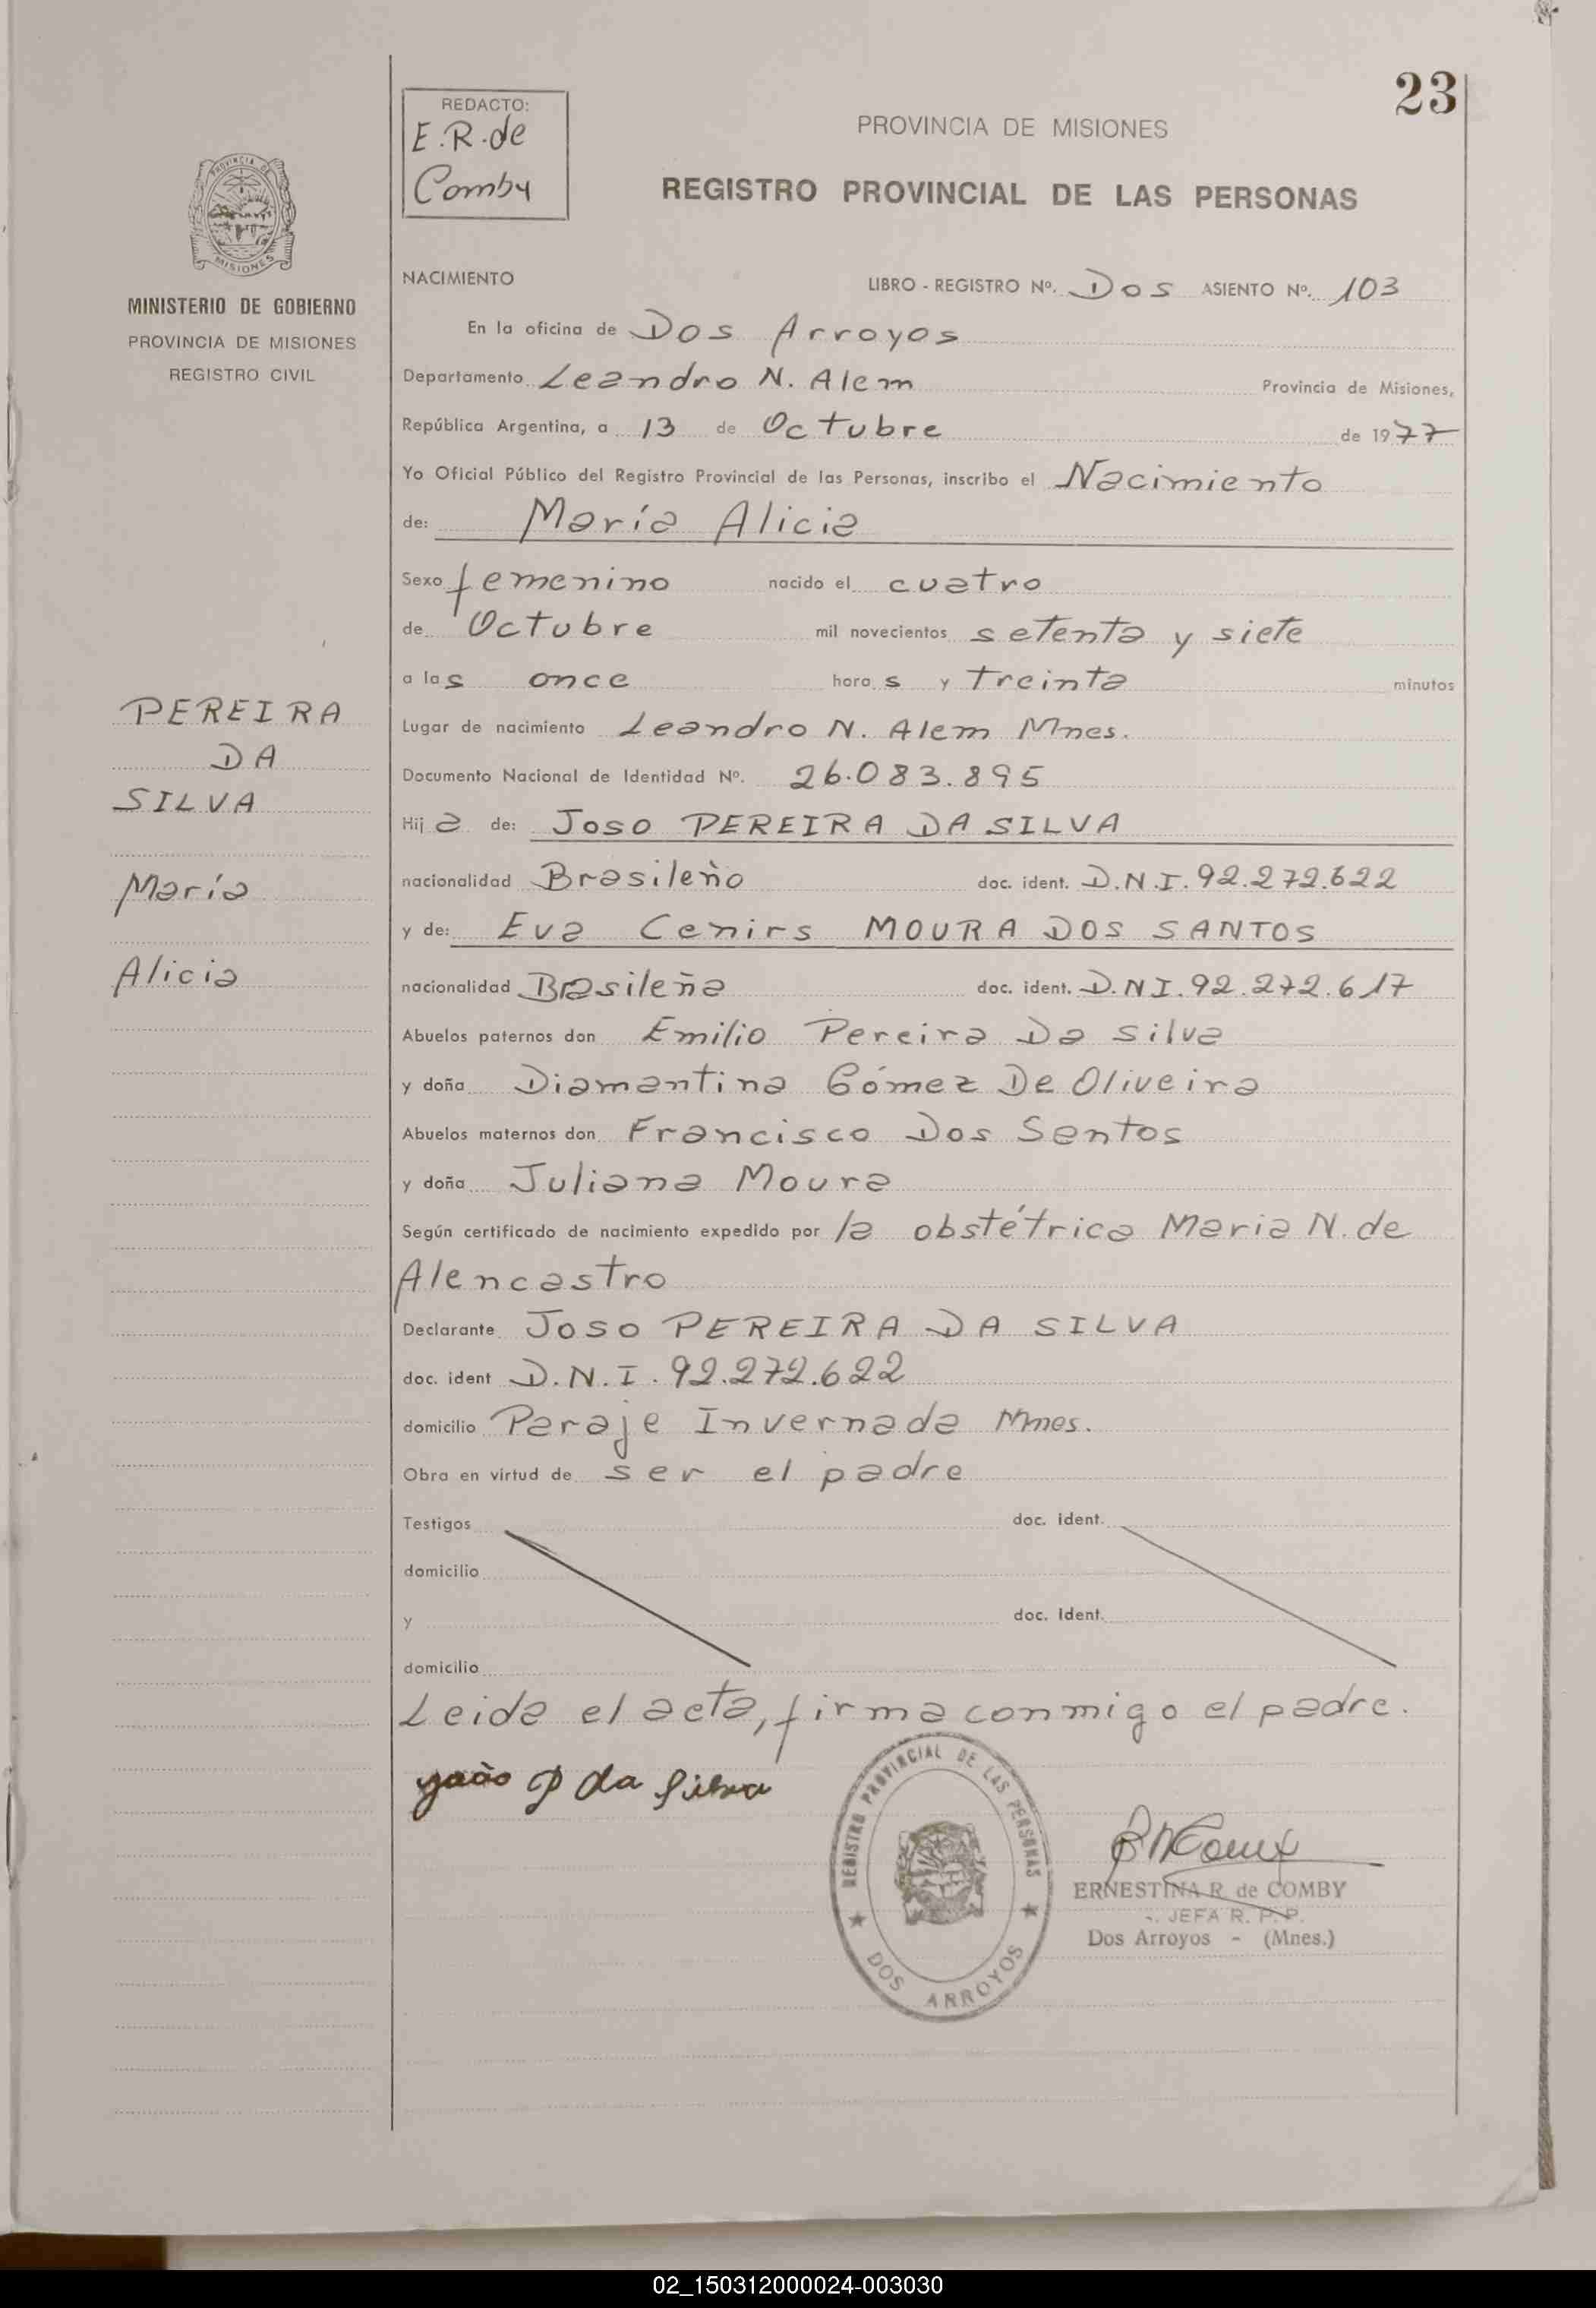 23
REDACTO:
E.R. de
Comby
PROVINCIA DE MISIONES
REGISTRO PROVINCIAL DE LAS PERSONAS
PROVINCIA DE
MISIONES
MINISTERIO DE GOBIERNO
PROVINCIA DE MISIONES
REGISTRO CIVIL
NACIMIENTO LIBRO - REGISTRO Nº. Dos ASIENTO Nº. 103
En la oficina de Dos Arroyos
Departamento Leandro N. Alem Provincia de Misiones,
República Argentina, a 13 de Octubre de 1977
Yo Oficial Público del Registro Provincial de las Personas, inscribo el Nacimiento
de: María Alicia
Sexo femenino nacido el cuatro
de Octubre mil novecientos setenta y siete
a las once horas y treinta minutos
Lugar de nacimiento Leandro N. Alem Mnes.
Documento Nacional de Identidad Nº. 26.083.895
Hija de: Joso PEREIRA DA SILVA
nacionalidad Brasileño doc. ident. D.N.I. 92.272.622
y de: Eva Cenirs MOURA DOS SANTOS
nacionalidad Brasileña doc. ident. D.N I. 92.272.617
Abuelos paternos don Emilio Pereira Da Silva
y doña Diamantina Gómez De Oliveira
Abuelos maternos don Francisco Dos Santos
y doña Juliana Moura
Según certificado de nacimiento expedido por la obstétrica Maria N. de
Alencastro
Declarante Joso PEREIRA DA SILVA
doc. ident D.N.I. 92.272.622
domicilio Paraje Invernada Mnes.
Obra en virtud de ser el padre
Testigos doc. ident.
domicilio
y doc. ident.
domicilio
Leida el acta, firma conmigo el padre.
PEREIRA
DA
SILVA
María
Alicia
João P da Silva
REGISTRO PROVINCIAL DE LAS PERSONAS
DOS ARROYOS
ERNESTINA R. de COMBY
JEFA R. P. P.
Dos Arroyos - (Mnes.)
02_150312000024-003030